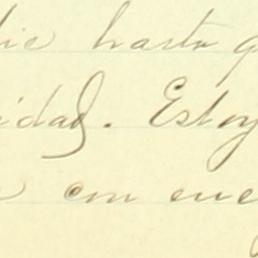 die hasta q
idad. Estoy
con ene